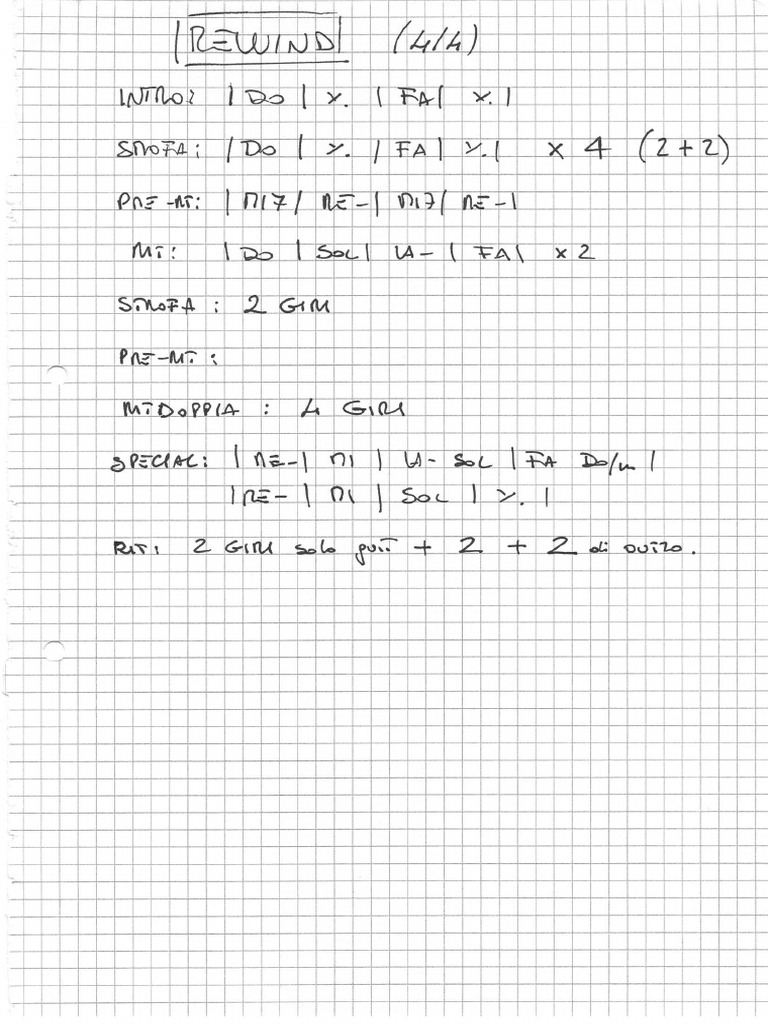 REWIND (4/4)
INTRO: | DO | ٪. | FA | ٪. |
STROFA: | DO | ٪. | FA | ٪. | x 4 (2+2)
PRE-RIT: | MI7 / RE- | MI7 / RE- |
RIT: | DO | SOL | LA- | FA | x2
STROFA : 2 GIRI
PRE-RIT :
RIT DOPPIA : 4 GIRI
SPECIAL: | RE- | MI | LA- SOL | FA DO/MI |
| RE- | MI | SOL | ٪. |
RIT: 2 GIRI solo guit + 2 + 2 di